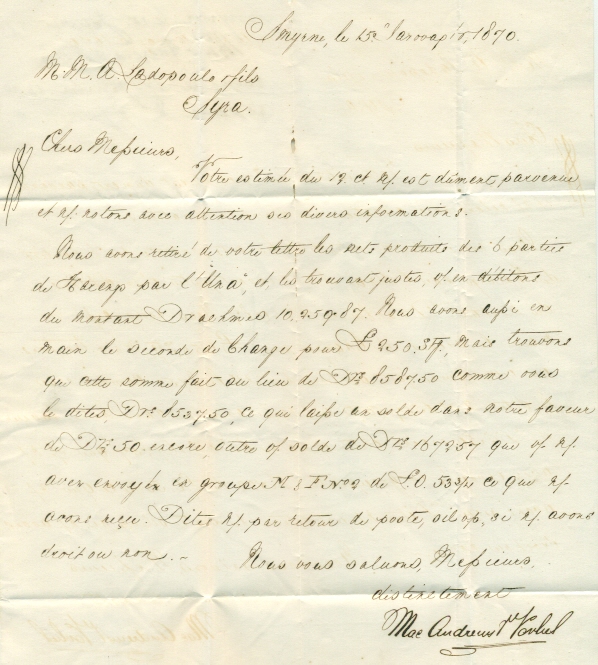 Smyrne, le 25 1870.
M. M. A. Ladopoulo & fils
Syra.
Chers Messieurs,
Votre estimée du 12. ct. n/. est dûment parvenue
et n/. notons avec attention ses divers informations.
Nous avons retiré de votre lettre les nets produits des 6 parties
de Harengs par l'"Una", et les trouvant justes, v/. en débitons
du montant Drachmes 10.259.87. Nous avons aussi en
main le seconde de Change pour £250. Stg, mais trouvons
que cette somme fait au lieu de Drs 8587.50 comme vous
le dites, Drs 8537.50, ce qui laisse un solde dans notre faveur
de Drs 50. encore outre v/ solde de Drs 1672.57 que v/. n/.
avez envoyés en groupe M & F No 2 de £.O. 53 3/4 ce que n/.
avons reçu. Dites n/. par retour de poste, sil vp, si n/. avons
droit ou non. -
Nous vous saluons, Messieurs,
distinctement
Mac Andrews